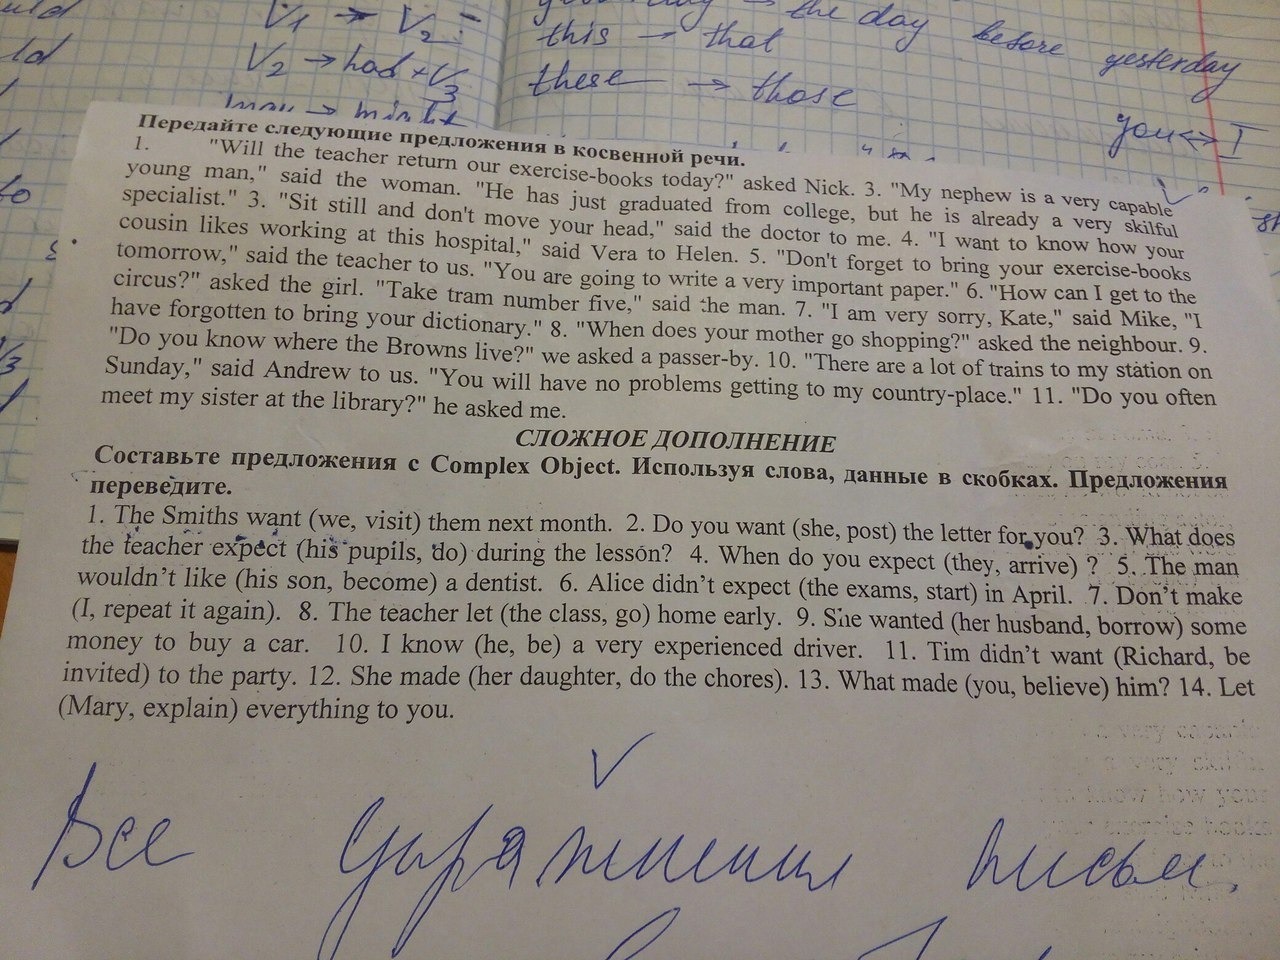 V1 → V2
the day before yesterday
this → that
V2 → had + V3
these → those
→ might
you <-> I
Передайте следующие предложения в косвенной речи.
1. "Will the teacher return our exercise-books today?" asked Nick. 3. "My nephew is a very capable
young man," said the woman. "He has just graduated from college, but he is already a very skilful
specialist." 3. "Sit still and don't move your head," said the doctor to me. 4. "I want to know how your
cousin likes working at this hospital," said Vera to Helen. 5. "Don't forget to bring your exercise-books
tomorrow," said the teacher to us. "You are going to write a very important paper." 6. "How can I get to the
circus?" asked the girl. "Take tram number five," said the man. 7. "I am very sorry, Kate," said Mike, "I
have forgotten to bring your dictionary." 8. "When does your mother go shopping?" asked the neighbour. 9.
"Do you know where the Browns live?" we asked a passer-by. 10. "There are a lot of trains to my station on
Sunday," said Andrew to us. "You will have no problems getting to my country-place." 11. "Do you often
meet my sister at the library?" he asked me.
СЛОЖНОЕ ДОПОЛНЕНИЕ
Составьте предложения с Complex Object. Используя слова, данные в скобках. Предложения
переведите.
1. The Smiths want (we, visit) them next month. 2. Do you want (she, post) the letter for you? 3. What does
the teacher expect (his pupils, do) during the lesson? 4. When do you expect (they, arrive) ? 5. The man
wouldn't like (his son, become) a dentist. 6. Alice didn't expect (the exams, start) in April. 7. Don't make
(I, repeat it again). 8. The teacher let (the class, go) home early. 9. She wanted (her husband, borrow) some
money to buy a car. 10. I know (he, be) a very experienced driver. 11. Tim didn't want (Richard, be
invited) to the party. 12. She made (her daughter, do the chores). 13. What made (you, believe) him? 14. Let
(Mary, explain) everything to you.
Все упражнения письм.